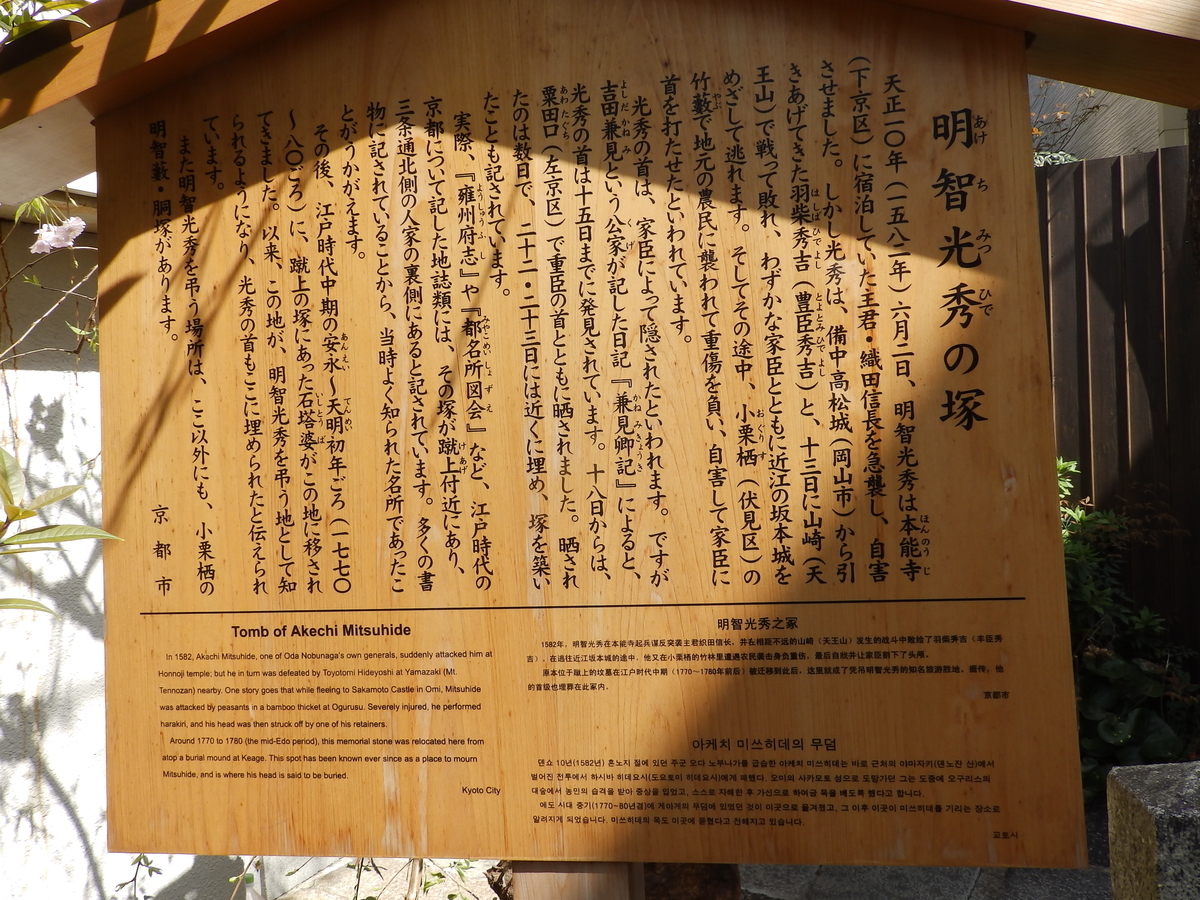 明智光秀の塚
あけちみつひで
天正一〇年（一五八二年）六月二日、明智光秀は本能寺
（下京区）に宿泊していた主君・織田信長を急襲し、自害
させました。しかし光秀は、備中高松城（岡山市）から引
きあげてきた羽柴秀吉（豊臣秀吉）と、十三日に山崎（天
王山）で戦って敗れ、わずかな家臣とともに近江の坂本城を
めざして逃れます。そしてその途中、小栗栖（伏見区）の
竹藪で地元の農民に襲われて重傷を負い、自害して家臣に
首を打たせたといわれています。
光秀の首は、家臣によって隠されたといわれます。ですが
吉田兼見という公家が記した日記『兼見卿記』によると、
光秀の首は十五日までに発見されています。十八日からは、
粟田口（左京区）で重臣の首とともに晒されました。晒され
たのは数日で、二十二・二十三日には近くに埋め、塚を築い
たことも記されています。
実際、『雍州府志』や『都名所図会』など、江戸時代の
京都について記した地誌類には、その塚が蹴上付近にあり、
三条通北側の人家の裏側にあると記されています。多くの書
物に記されていることから、当時よく知られた名所であったこ
とがうかがえます。
その後、江戸時代中期の安永～天明初年ごろ（一七七〇
～八〇ごろ）に、蹴上の塚にあった石塔婆がこの地に移され
てきました。以来、この地が、明智光秀を弔う地として知
られるようになり、光秀の首もここに埋められたと伝えられ
ています。
また明智光秀を弔う場所は、ここ以外にも、小栗栖の
明智藪・胴塚があります。
京都市
Tomb of Akechi Mitsuhide
In 1582, Akechi Mitsuhide, one of Oda Nobunaga's own generals, suddenly attacked him at
Honnoji temple; but he in turn was defeated by Toyotomi Hideyoshi at Yamazaki (Mt.
Tennozan) nearby. One story goes that while fleeing to Sakamoto Castle in Omi, Mitsuhide
was attacked by peasants in a bamboo thicket at Ogurusu. Severely injured, he performed
harakiri, and his head was then struck off by one of his retainers.
Around 1770 to 1780 (the mid-Edo period), this memorial stone was relocated here from
atop a burial mound at Keage. This spot has been known ever since as a place to mourn
Mitsuhide, and is where his head is said to be buried.
Kyoto City
明智光秀之冢
1582年，明智光秀在本能寺起兵谋反突袭主君织田信长，并在相距不远的山崎（天王山）发生的战斗中败给了羽柴秀吉（丰臣秀
吉）。在逃往近江坂本城的途中，他又在小栗栖的竹林里遭遇农民袭击身负重伤，最后自戕并让家臣割下了头颅。
原本位于蹴上的坟墓在江户时代中期（1770～1780年前后）被迁移到此后，这里就成了凭吊明智光秀的知名旅游胜地。据传，他
的首级也埋葬在此冢内。
京都市
아케치 미쓰히데의 무덤
덴쇼 10년(1582년) 혼노지 절에 있던 주군 오다 노부나가를 급습한 아케치 미쓰히데는 바로 근처의 야마자키(덴노잔 산)에서
벌어진 전투에서 하시바 히데요시(도요토미 히데요시)에게 패했다. 오미의 사카모토 성으로 도망가던 그는 도중에 오구리스의
대숲에서 농민의 습격을 받아 중상을 입었고, 스스로 자해한 후 가신으로 하여금 목을 베도록 했다고 합니다.
에도 시대 중기(1770~80년경)에 게아게의 무덤에 있었던 것이 이곳으로 옮겨졌고, 그 이후 이곳이 미쓰히데를 기리는 장소로
알려지게 되었습니다. 미쓰히데의 목도 이곳에 묻혔다고 전해지고 있습니다.
교토시